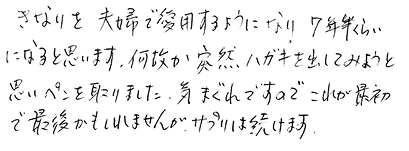 きなりを 夫婦で愛用するようになり 7年半くらい
になると思います。何故か 突然 ハガキを出してみようと
思いペンを取りました。気まぐれですので これが最初
で最後かもしれませんが、サプリは続けます。